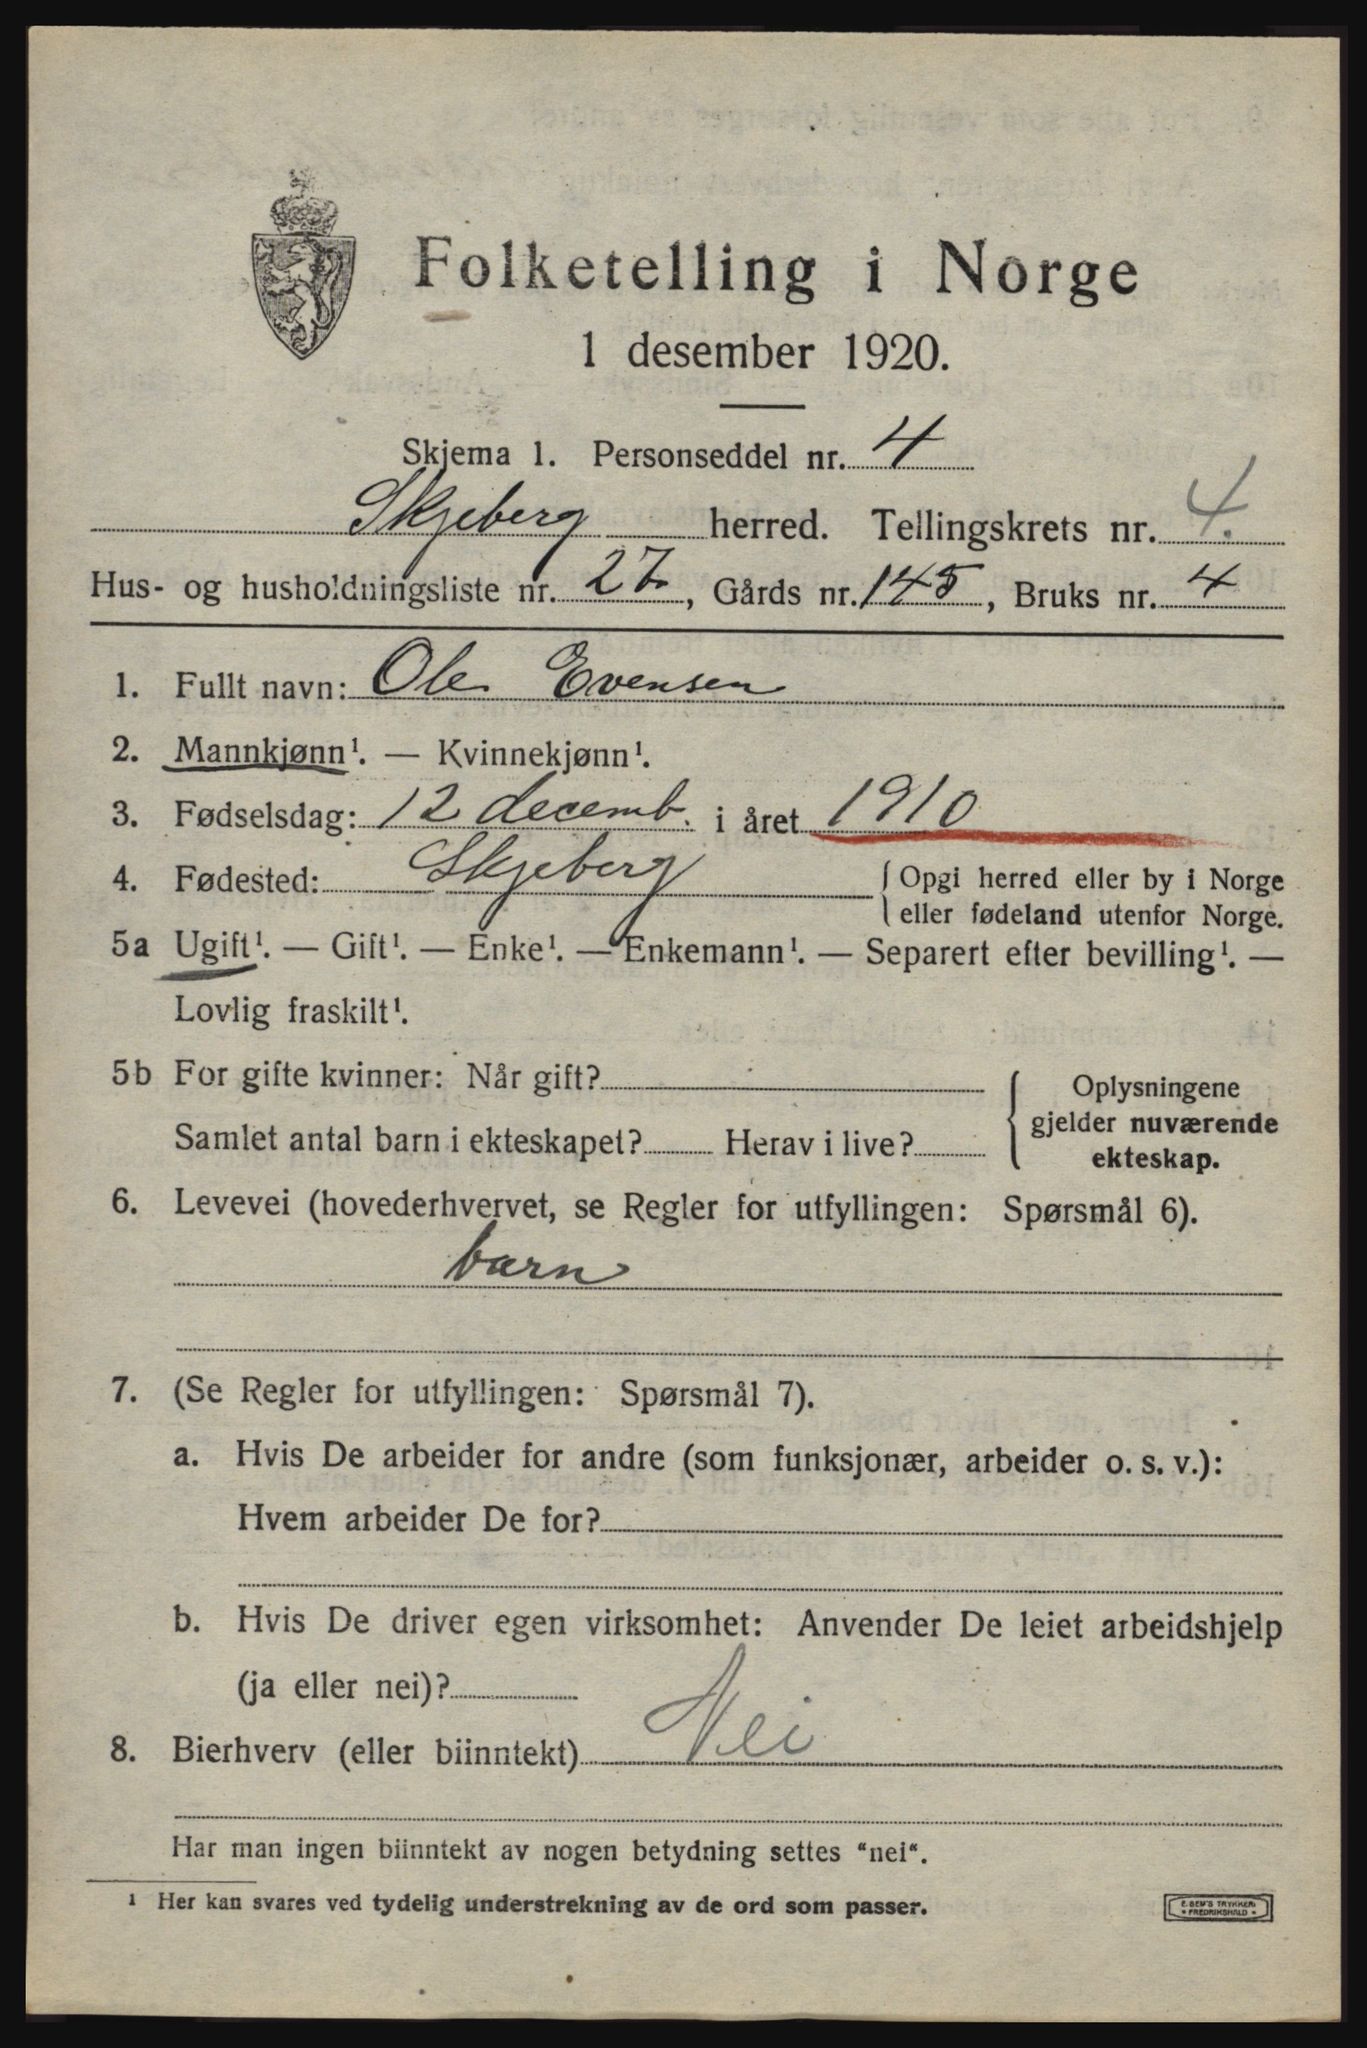 Folketelling i Norge
1 desember 1920.
Skjema 1. Personseddel nr. 4
Skjeberg herred. Tellingskrets nr. 4.
Hus- og husholdningsliste nr. 27, Gårds nr. 145, Bruks nr. 4
1. Fullt navn: Ole Evensen
2. Mannkjønn¹. — Kvinnekjønn¹.
3. Fødselsdag: 12 decemb. i året 1910
4. Fødested: Skjeberg { Opgi herred eller by i Norge
eller fødeland utenfor Norge.
5a Ugift¹. — Gift¹. — Enke¹. — Enkemann¹. — Separert efter bevilling¹. —
Lovlig fraskilt¹.
5b For gifte kvinner: Når gift?
Samlet antal barn i ekteskapet? Herav i live?
{ Oplysningene
gjelder nuværende
ekteskap.
6. Levevei (hovederhvervet, se Regler for utfyllingen: Spørsmål 6).
barn
7. (Se Regler for utfyllingen: Spørsmål 7).
a. Hvis De arbeider for andre (som funksjonær, arbeider o. s. v.):
Hvem arbeider De for?
b. Hvis De driver egen virksomhet: Anvender De leiet arbeidshjelp
(ja eller nei)?
8. Bierhverv (eller biinntekt) Nei
Har man ingen biinntekt av nogen betydning settes “nei“.
¹ Her kan svares ved tydelig understrekning av de ord som passer.
E. SEM'S TRYKKERI
* FREDRIKSHALD *